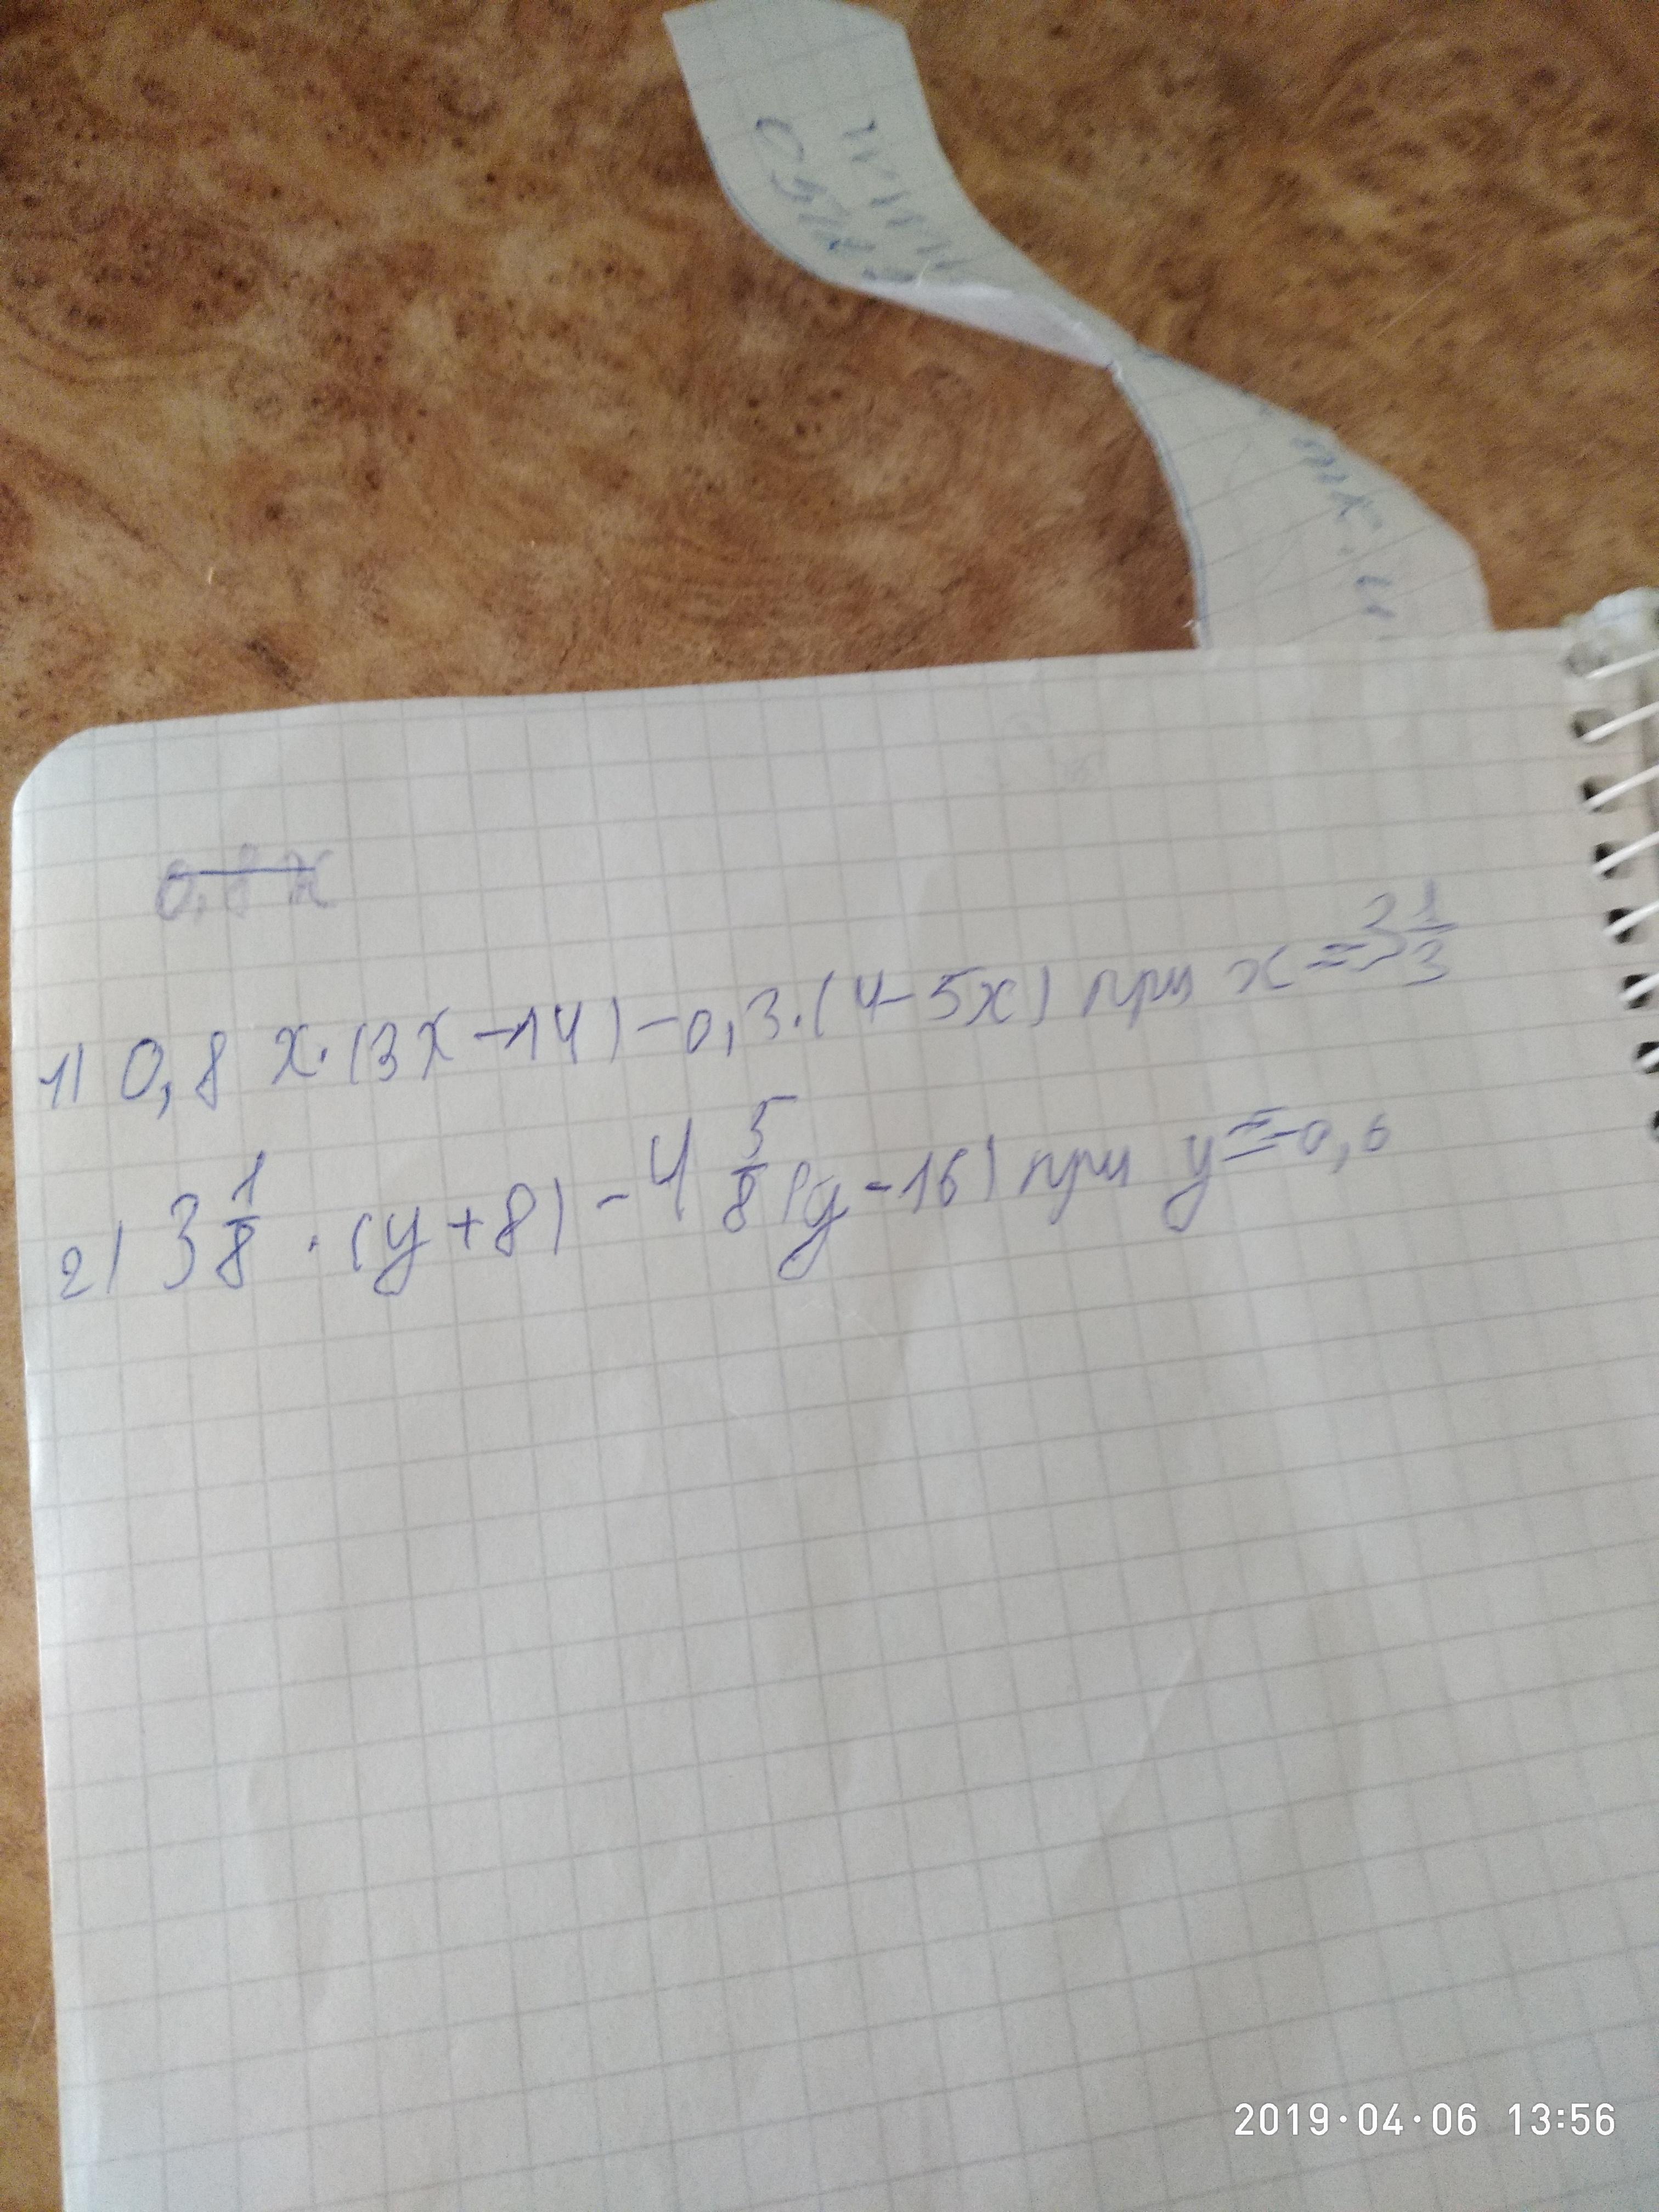 0,8 х
1) 0,8 х·(3х-14)-0,3·(4-5х) при х=3 1/3
2) 3 1/8 · (у+8) - 4 5/8 (у-16) при у=-0,6
2019·04·06 13:56